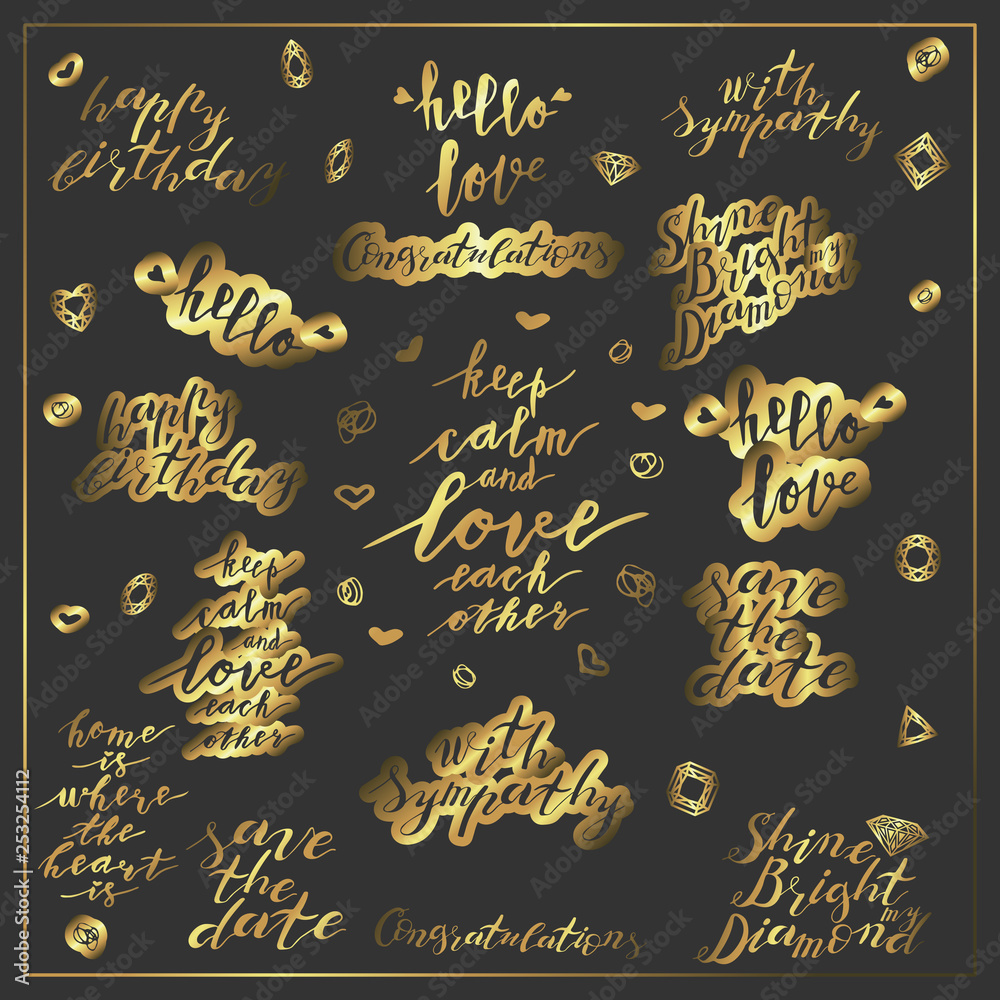 happy
birthday
hello
love
with
sympathy
Congratulations
Shine
Bright
my
Diamond
hello
keep
calm
and
lovee
each
other
happy
birthday
hello
love
keep
calm
and
lovee
each
other
save
the
date
home
is
where
the
heart
is
with
sympathy
save
the
date
Congratulations
Shine
Bright
my
Diamond
Adobe Stock | #253254112